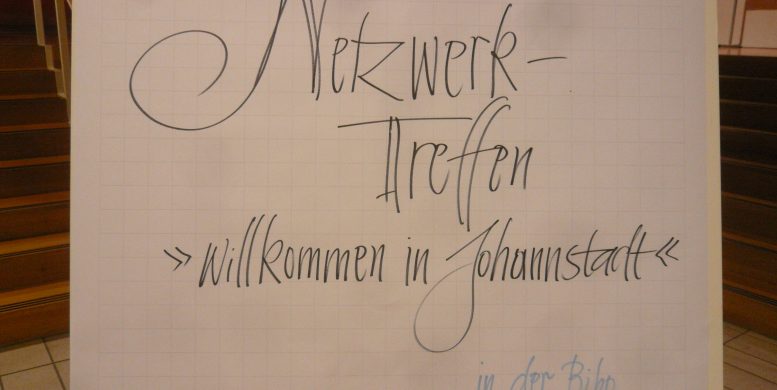 Netzwerk-
Treffen
»Willkommen in Johannstadt«
in der Bibo